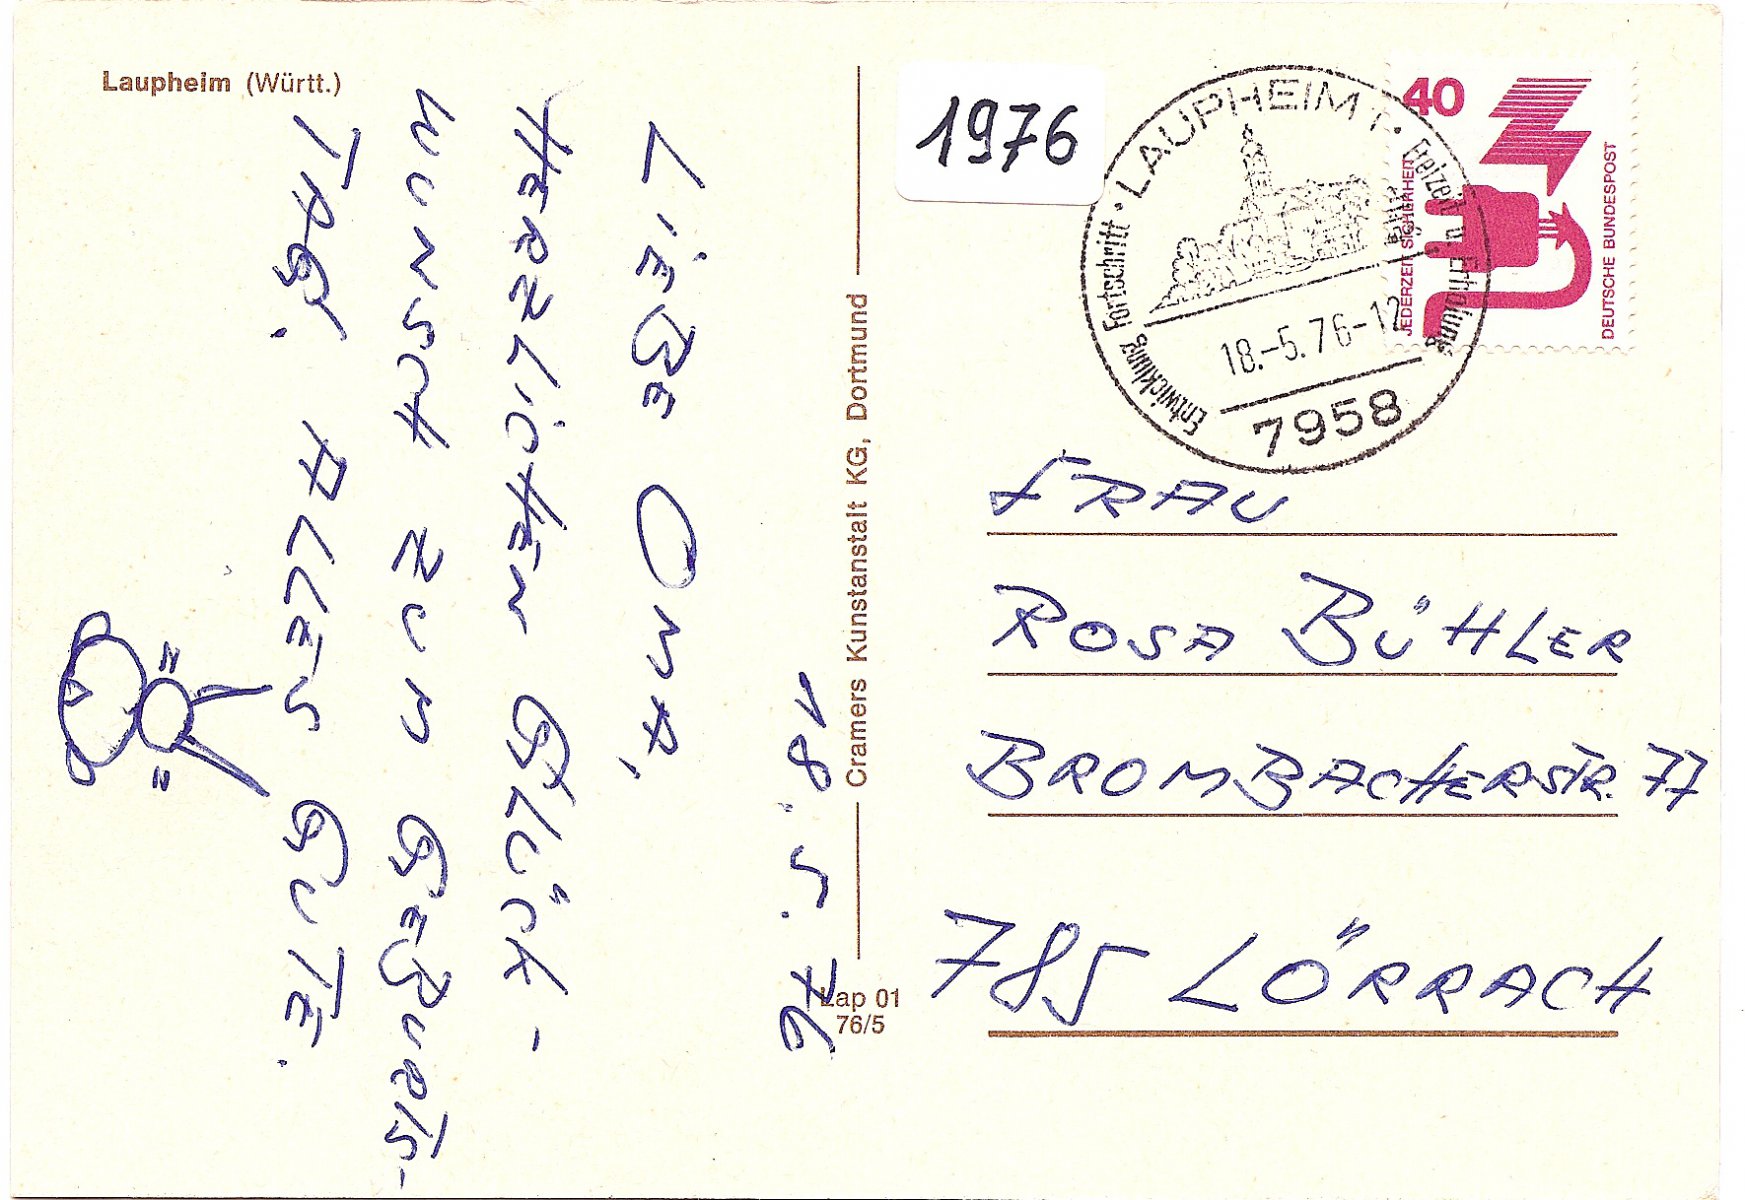 Laupheim (Württ.)
1976
40
JEDERZEIT SICHERHEIT
DEUTSCHE BUNDESPOST
LAUPHEIM 1
Entwicklung Fortschritt
Freizeit u. Erholung
18.-5.76-12
7958
Cramers Kunstanstalt KG, Dortmund
Lap 01
76/5
18. 5. 76
LIEBE OMA,
HERZLICHEN GLÜCK-
WUNSCH ZUM GEBURTS-
TAG. ALLES GUTE.
FRAU
ROSA BÜHLER
BROMBACHERSTR. 77
785 LÖRRACH